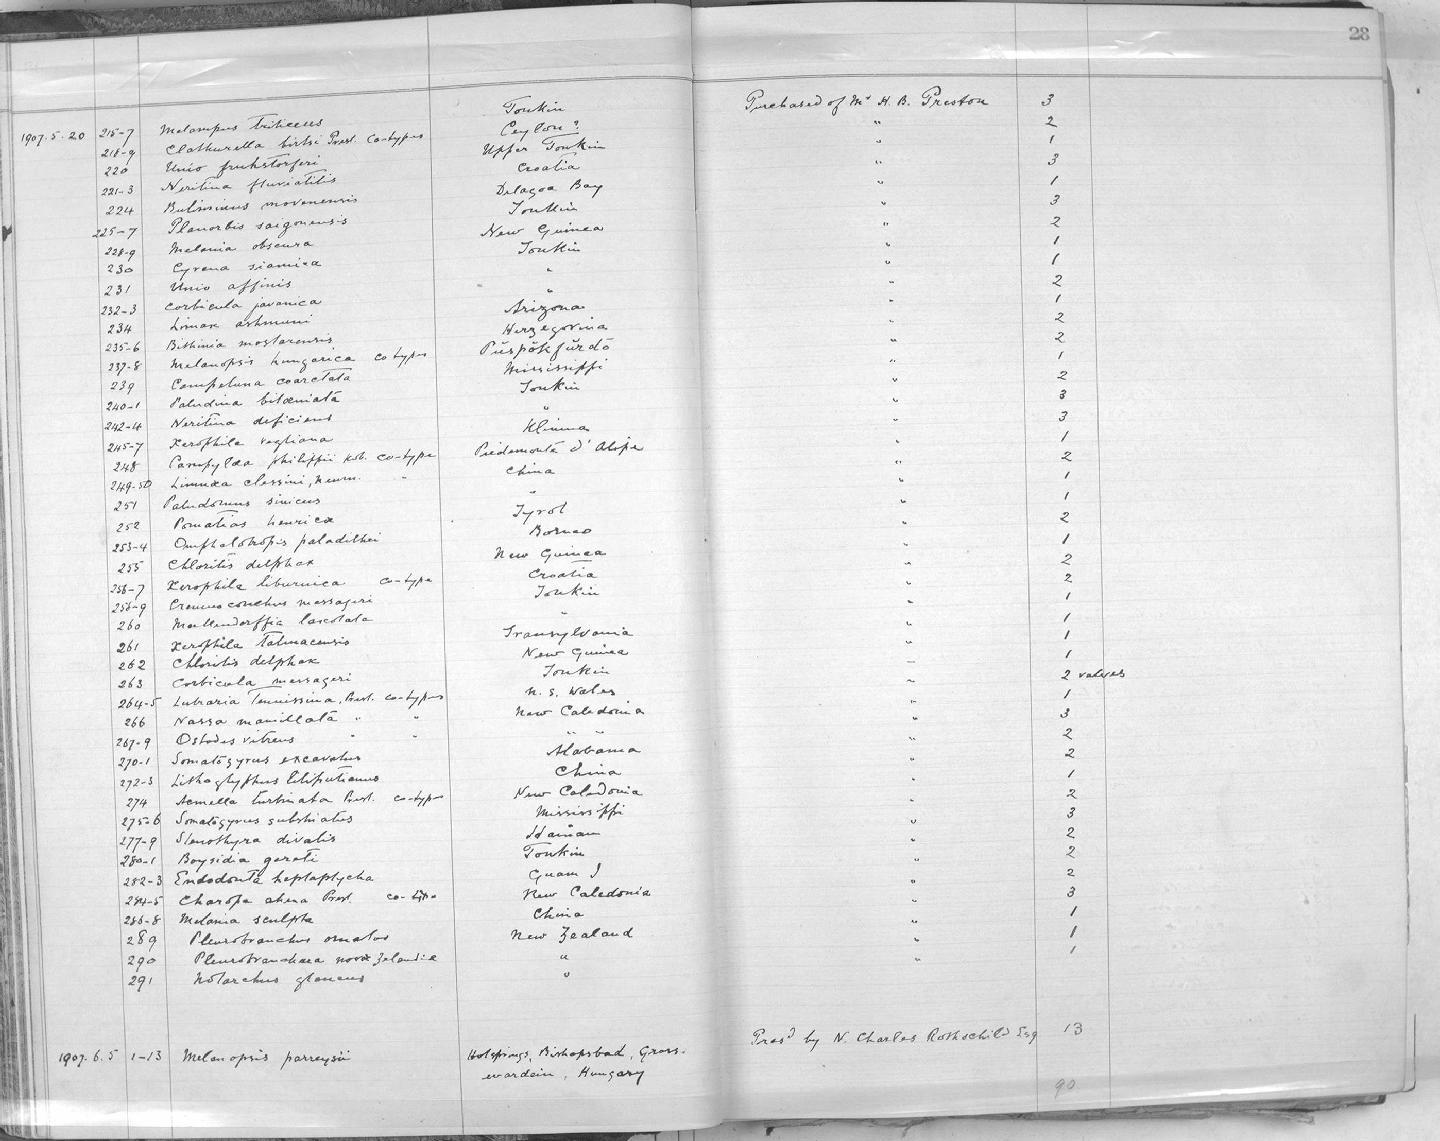 28
1907.5.20 215-7 Melampus triticeus Tonkin Purchased of Mr H. B. Preston 3
218-9 Clathurella birtsi Prest. Co-types Ceylon? " 2
220 Unio fruhstorferi Upper Tonkin " 1
221-3 Neritina fluviatilis Croatia " 3
224 Buliminus movenensis Delagoa Bay " 1
225-7 Planorbis saigonensis Tonkin " 3
228-9 Melania obscura New Guinea " 2
230 Cyrena siamica Tonkin " 1
231 Unio affinis " " 1
232-3 Corbicula javanica " " 2
234 Limax ashmuni Arizona " 1
235-6 Bithinia mostarensis Herzegovina " 2
237-8 Melanopsis hungarica co-types Püspökfürdö " 2
239 Campeluna coarctata Mississippi " 1
240-1 Paludina bitaeniata Tonkin " 2
242-4 Neritina deficiens " " 3
245-7 Xerophila vegliana Klinna " 3
248 Campylaea philippii Kob. co-type Piedemonta d'Alife " 1
249-50 Limnaea clessini, Neum. " China " 2
251 Paludomus sinicus " " 1
252 Pomatias henricae Tyrol " 1
253-4 Omphalotropis paladilhei Borneo " 2
255 Chloritis delphax New Guinea " 1
256-7 Xerophila liburnica co-type Croatia " 2
258-9 Cremnoconchus messageri Tonkin " 2
260 Mollendorffia loxotata " " 1
261 Xerophila talmacensis Transylvania " 1
262 Chloritis delphax New Guinea " 1
263 Corbicula messageri Tonkin " 1
264-5 Lutraria tenuissima, Prest. co-types N. S. Wales " 2 valves
266 Nassa mamillata " " New Caledonia " 1
267-9 Ostodes vitreus " " " " " 3
270-1 Somatogyrus excavatus Alabama " 2
272-3 Lithoglyphus liliputianus China " 2
274 Acmella turbinata Prest. co-types New Caledonia " 1
275-6 Somatogyrus substriatus Mississippi " 2
277-9 Stenothyra divalis Hainan " 3
280-1 Boysidia gereti Tonkin " 2
282-3 Endodonta heptaptycha Guam I " 2
284-5 Charopa ahena Prest. co-type New Caledonia " 2
286-8 Melania sculpta China " 3
289 Pleurobranchus ornatus New Zealand " 1
290 Pleurobranchaea novae zelandiae " " 1
291 Notarchus glaucus " " 1
1907.6.5 1-13 Melanopsis parreyssi Hotsprings, Bishopsbad, Gross- Presd by N. Charles Rothschild Esq 13
wardein, Hungary
90